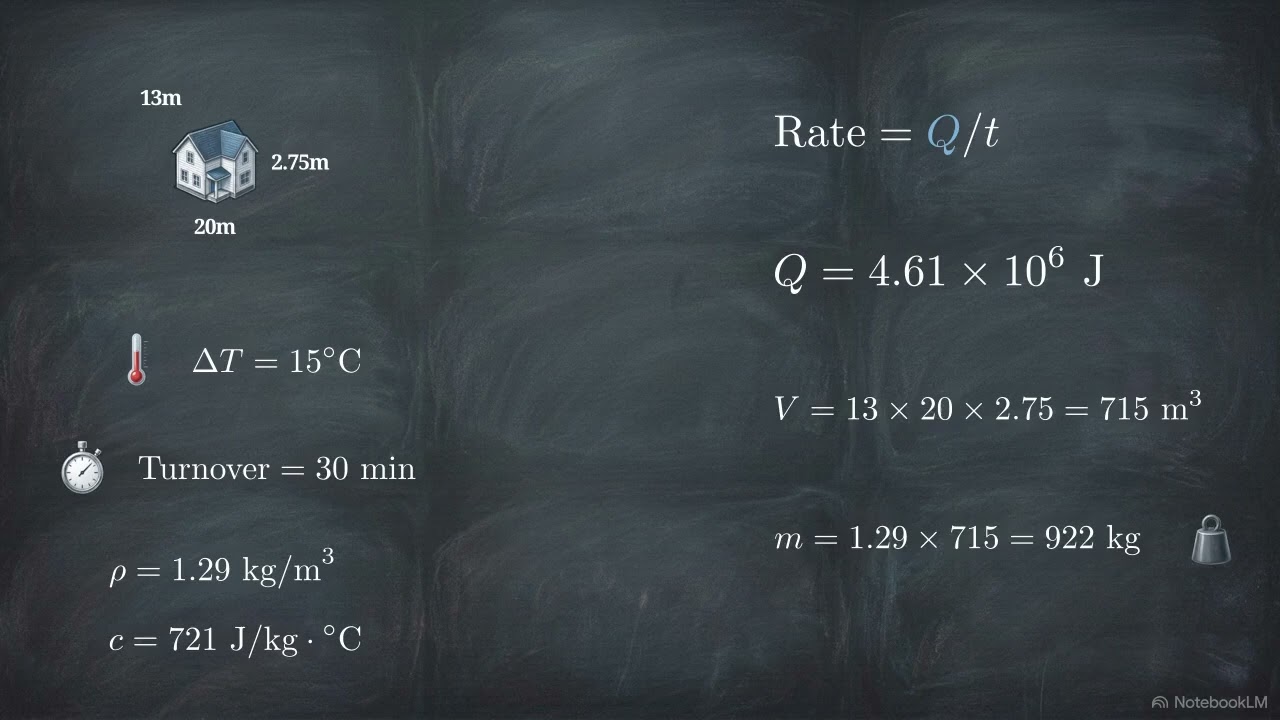 13m
2.75m
20m
ΔT = 15°C
Turnover = 30 min
ρ = 1.29 kg/m³
c = 721 J/kg · °C
Rate = Q/t
Q = 4.61 × 10⁶ J
V = 13 × 20 × 2.75 = 715 m³
m = 1.29 × 715 = 922 kg
NotebookLM